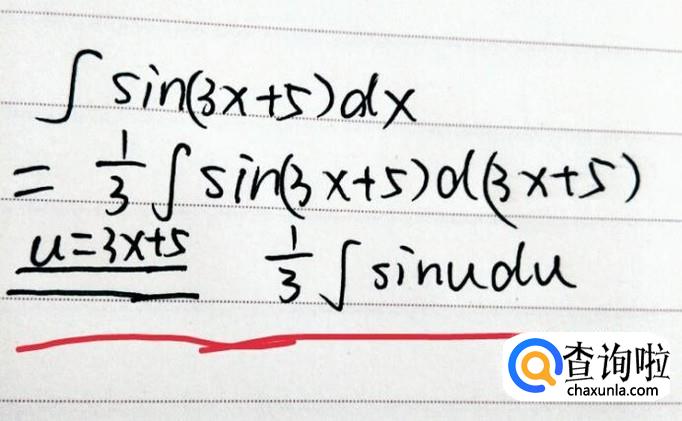 ∫ sin(3x+5)dx
= 1/3 ∫ sin(3x+5)d(3x+5)
u=3x+5 1/3 ∫ sinudu
查询啦
chaxunla.com